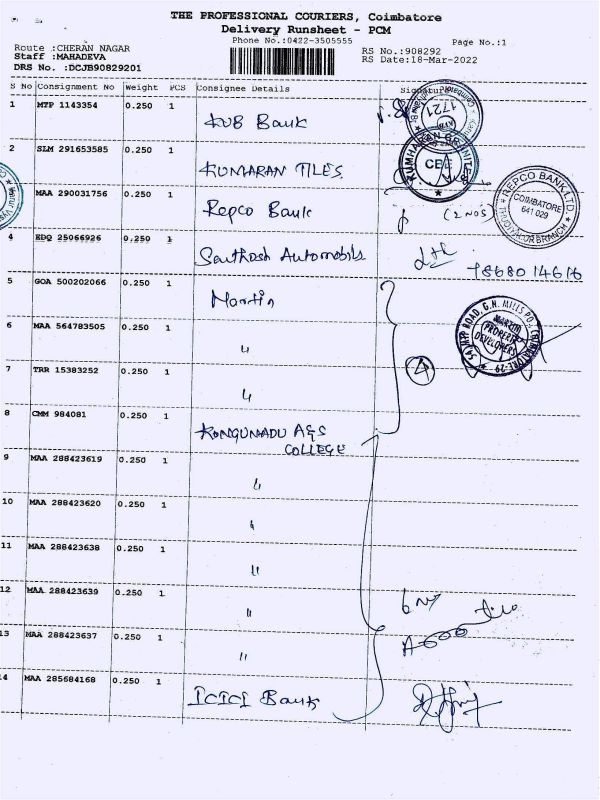 THE PROFESSIONAL COURIERS, Coimbatore
Delivery Runsheet - PCM
Phone No.:0422-3505555
Page No.:1
Route :CHERAN NAGAR
Staff :MAHADEVA
DRS No. :DCJB90829201
RS No.:908292
RS Date:18-Mar-2022
S No Consignment No Weight PCS Consignee Details Signature
1 MTP 1143354 0.250 1 KVB Bank
1721
2 SLM 291653585 0.250 1 KUMARAN TILES
3 MAA 290031756 0.250 1 Repco Bank (2 NOS)
REPCO BANK LTD.
COIMBATORE
641 029
4 EDQ 25066926 0.250 1 Santhosh Automobils
5 GOA 500202066 0.250 1 Martin
MARTIN
PROPERTY
DEVELOPERS
6 MAA 564783505 0.250 1 "
7 TRR 15383252 0.250 1 " 4
8 CMM 984081 0.250 1 KONGUNADU A&S
COLLEGE
9 MAA 288423619 0.250 1 "
10 MAA 288423620 0.250 1 "
11 MAA 288423638 0.250 1 "
12 MAA 288423639 0.250 1 "
13 MAA 288423637 0.250 1 "
14 MAA 285684168 0.250 1 ICICI Bank